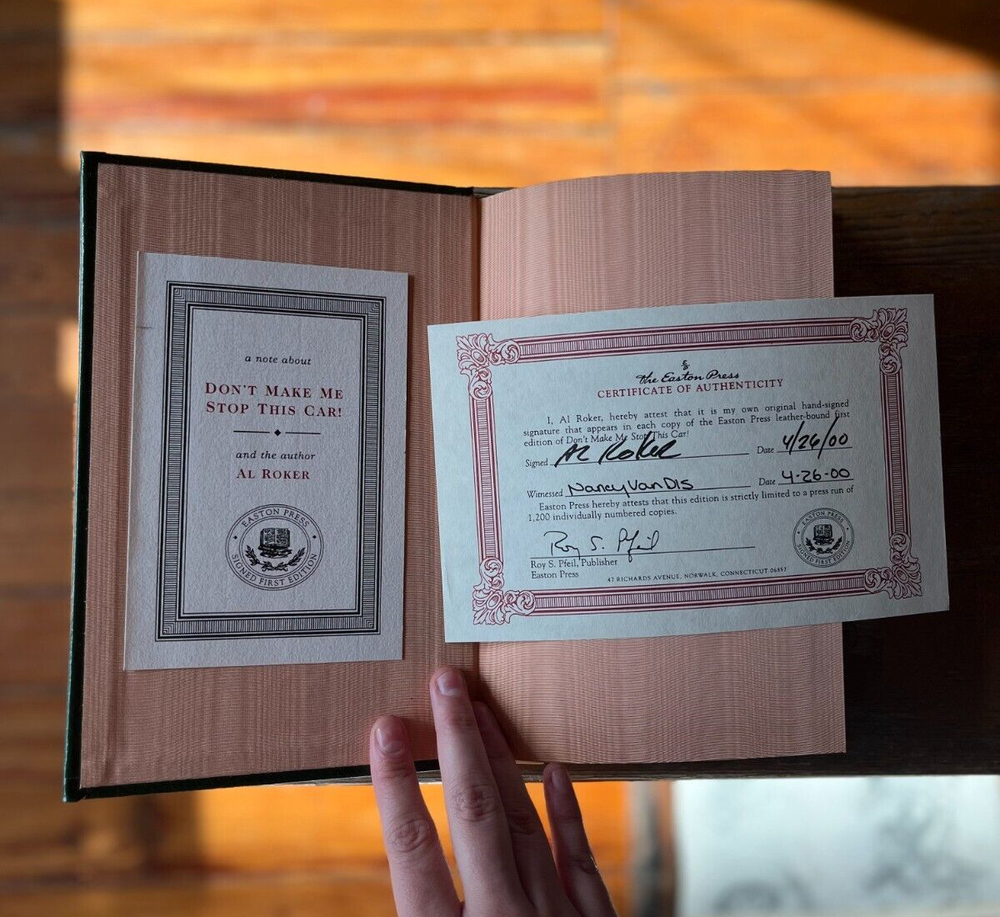 a note about
DON'T MAKE ME
STOP THIS CAR!
and the author
AL ROKER
EASTON PRESS
SIGNED FIRST EDITION
The Easton Press
CERTIFICATE OF AUTHENTICITY
I, Al Roker, hereby attest that it is my own original hand-signed
signature that appears in each copy of the Easton Press leather-bound first
edition of Don't Make Me Stop This Car!
Signed Al Roker Date 4/26/00
Witnessed Nancy Van Dis Date 4-26-00
Easton Press hereby attests that this edition is strictly limited to a press run of
1,200 individually numbered copies.
Roy S. Pfeil
Roy S. Pfeil, Publisher
Easton Press
EASTON PRESS
SIGNED FIRST EDITION
47 RICHARDS AVENUE, NORWALK, CONNECTICUT 06857